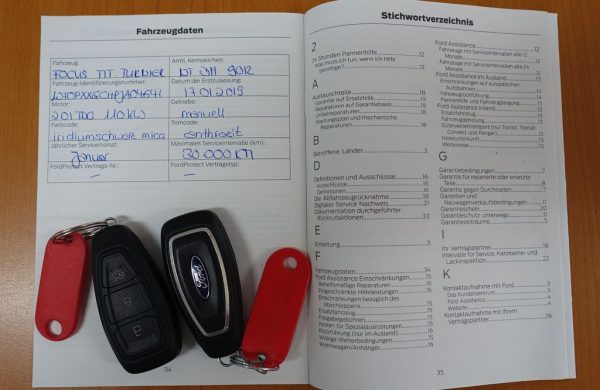 Fahrzeugdaten
Fahrzeug:
Amtl. Kennzeichen:
FOCUS TIT. TURNIER
Fahrzeug-Identifizierungsnummer:
Datum der Erstzulassung:
17.01.2019
Motor:
Getriebe:
110 KW
manuell
Farbcode:
Trimcode:
iridiumschwarz mica
anthrazit
Jährlicher Servicemonat:
Maximales Serviceintervalle (km):
Januar
30 000 KM
FordProtect Vertrags-Nr.:
FordProtect Vertragstyp:
—
—
Ford
34
Stichwortverzeichnis
2
24 Stunden Pannenhilfe 12
Was muss ich tun, wenn ich Hilfe
benötige? 12
A
Austauschteile 18
Garantie auf Ersatzteile 18
Reparaturen auf Garantiebasis 18
Unfallreparaturen 18
Wartungsplan und mechanische
Reparaturen 18
B
Betroffene Länder 3
D
Definitionen und Ausschlüsse 16
Ausschlüsse 16
Definitionen 16
Die Altfahrzeugrücknahme 19
Digitaler Service Nachweis 21
Dokumentation durchgeführter
Rückrufaktionen 33
E
Einleitung 3
F
Fahrzeugdaten 34
Ford Assistance Einschränkungen 15
Betriebsmäßige Reparaturen 16
Eingeschränkte Hilfeleistungen 16
Einschränkungen bezüglich des
Abschleppens 15
Ersatzfahrzeug 15
Freigabegebühren 15
Kosten für Spezialausrüstungen 15
Rückführung (nur im Ausland) 16
Widrige Wetterbedingungen 15
Wohnwagen/Anhänger 16
Ford Assistance 12
Fahrzeuge mit Serviceintervallen alle 12
Monate
Fahrzeuge mit Serviceintervallen alle 24
Monate 12
Ford Assistance im Ausland 13
Ford Assistance im europäischen
Ausland
Fahrzeugrückführung 14
Pannenhilfe und Fahrzeugbergung 13
Ford Assistance im Inland 13
Ersatzfahrzeug 13
Fahrzeugbergung 13
Gütersatztransport (nur Transit, Transit
Connect und Ranger) 13
Hotelunterkunft 13
Weiterreise 13
G
Garantiebedingungen 7
Garantie für reparierte oder ersetzte
Teile 8
Garantie gegen Durchrosten 7
Garantien und
Neuwagenverkaufsbedingungen 11
Garantieschein 20
Garantieschutz unterwegs 11
Garantiezeiträume 5
I
Ihr Vertragspartner 18
Intervalle für Service, Karosserie- und
Lackinspektion 22
K
Kontaktaufnahme mit Ford 3
Das Kundenzentrum 3
Ford Assistance 4
Website 4
Kontaktaufnahme mit Ihrem
Vertragspartner 19
35